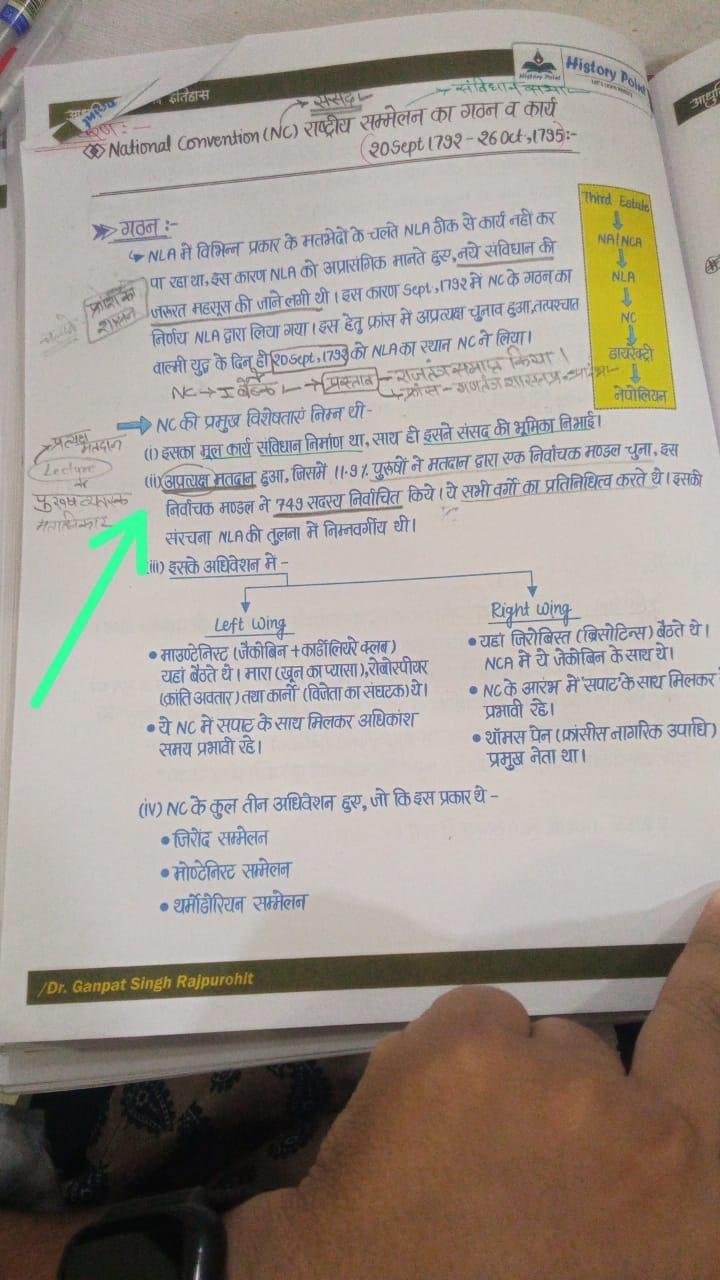 History Point
History Point
इतिहास
संसद
संविधान सभा
National Convention (NC) राष्ट्रीय सम्मेलन का गठन व कार्य
20 Sept 1792 - 26 Oct, 1795:-
गठन :-
NLA में विभिन्न प्रकार के मतभेदों के चलते NLA ठीक से कार्य नहीं कर
पा रहा था, इस कारण NLA को अप्रासंगिक मानते हुए, नये संविधान की
जरूरत महसूस की जाने लगी थी। इस कारण Sept, 1792 में NC के गठन का
निर्णय NLA द्वारा लिया गया। इस हेतु फ्रांस में अप्रत्यक्ष चुनाव हुआ, तत्पश्चात
वाल्मी युद्ध के दिन ही 20 Sept, 1792 को NLA का स्थान NC ने लिया।
NC → I बैठक → प्रस्ताव - राजतंत्र समाप्त किया।
फ्रांस - गणतंत्र
Third Estate
NA/NCA
NLA
NC
डायरेक्ट्री
नेपोलियन
NC की प्रमुख विशेषताएं निम्न थी -
(i) इसका मूल कार्य संविधान निर्माण था, साथ ही इसने संसद की भूमिका निभाई।
(ii) अप्रत्यक्ष मतदान हुआ, जिसमें 11.9% पुरुषों ने मतदान द्वारा एक निर्वाचक मण्डल चुना, इस
निर्वाचक मण्डल ने 749 सदस्य निर्वाचित किये। ये सभी वर्गो का प्रतिनिधित्व करते थे। इसकी
संरचना NLA की तुलना में निम्नवर्गीय थी।
प्रत्यक्ष
मतदान
Lecture
में
पुरुष वयस्क
मताधिकार
(iii) इसके अधिवेशन में -
Left Wing
• माउण्टेनिस्ट (जैकोबिन + कार्डीलियरे क्लब)
यहां बैठते थे। मारा (खून का प्यासा), रोबोस्पीयर
(क्रांति अवतार) तथा कार्नो (विजेता का संघटक) थे।
• ये NC में सपाट के साथ मिलकर अधिकांश
समय प्रभावी रहे।
Right Wing
• यहां जिरोंबिस्त (ब्रिसोटिन्स) बैठते थे।
NCA में ये जेकोबिन के साथ थे।
• NC के आरंभ में 'सपाट' के साथ मिलकर
प्रभावी रहे।
• थॉमस पेन (फ्रांसीस नागरिक उपाधि)
प्रमुख नेता था।
(iv) NC के कुल तीन अधिवेशन हुए, जो कि इस प्रकार थे -
• जिरोंद सम्मेलन
• मोण्टेनिस्ट सम्मेलन
• थर्मोडोरियन सम्मेलन
/Dr. Ganpat Singh Rajpurohit